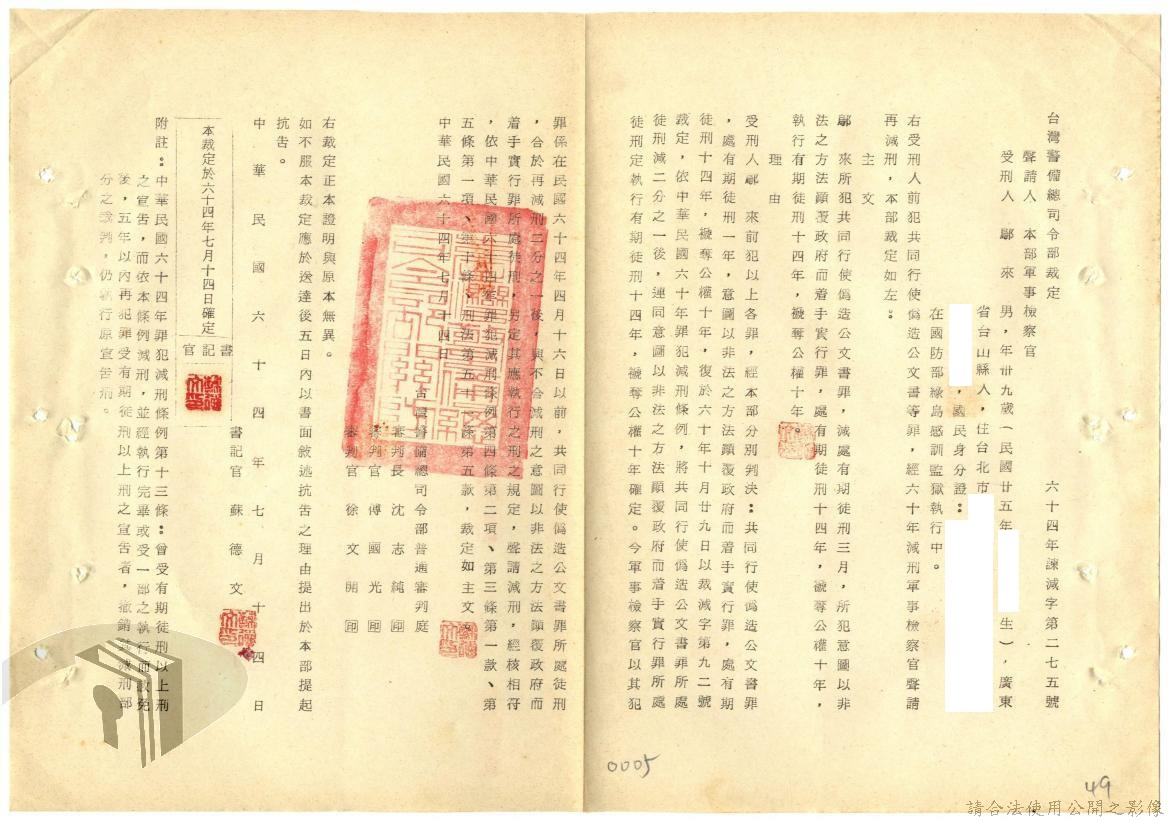 台灣警備總司令部裁定
六十四年諫減字第二七五號
聲請人　本部軍事檢察官
受刑人　鄔　來　男，年卅九歲（民國廿五年　生），廣東
省台山縣人，住台北市
，國民身分證：
在國防部綠島感訓監獄執行中。
右受刑人前犯共同行使偽造公文書等罪，經六十年減刑軍事檢察官聲請
再減刑，本部裁定如左：
主　文
鄔　來所犯共同行使偽造公文書罪，減處有期徒刑三月，所犯意圖以非
法之方法顛覆政府而着手實行罪，處有期徒刑十四年，褫奪公權十年，
執行有期徒刑十四年，褫奪公權十年。
理　由
受刑人鄔　來前犯以上各罪，經本部分別判決：共同行使偽造公文書罪
，處有期徒刑一年，意圖以非法之方法顛覆政府而着手實行罪，處有期
徒刑十四年，褫奪公權十年，復於六十年十月廿九日以裁減字第九二號
裁定，依中華民國六十年罪犯減刑條例，將共同行使偽造公文書罪所處
徒刑減二分之一後，連同意圖以非法之方法顛覆政府而着手實行罪所處
徒刑定執行有期徒刑十四年，褫奪公權十年確定。今軍事檢察官以其犯
罪係在民國六十四年四月十六日以前，共同行使偽造公文書罪所處徒刑
，合於再減刑二分之一後，與不合減刑之意圖以非法之方法顛覆政府而
着手實行罪所處徒刑，另定其應執行之刑之規定，聲請減刑，經核相符
，依中華民國六十四年罪犯減刑條例第四條第二項、第三條第一款、第
五條第一項、第十條、刑法第五十一條第五款，裁定如主文。
中華民國六十四年七月十四日
台灣警備總司令部普通審判庭
審判長　沈　志　純　印
審判官　傅　國　光　印
審判官　徐　文　開　印
右裁定正本證明與原本無異。
如不服本裁定應於送達後五日內以書面敘述抗告之理由提出於本部提起
抗告。
中華民國六十四年七月十四日
書記官　蘇　德　文
本裁定於六十四年七月十四日確定
書記官
附註：中華民國六十四年罪犯減刑條例第十三條：曾受有期徒刑以上刑
之宣告，而依本條例減刑，並經執行完畢或受一部之執行而赦免
後，五年以內再犯罪受有期徒刑以上刑之宣告者，撤銷其減刑部
分之裁判，仍執行原宣告刑。
0005
49
請合法使用公開之影像